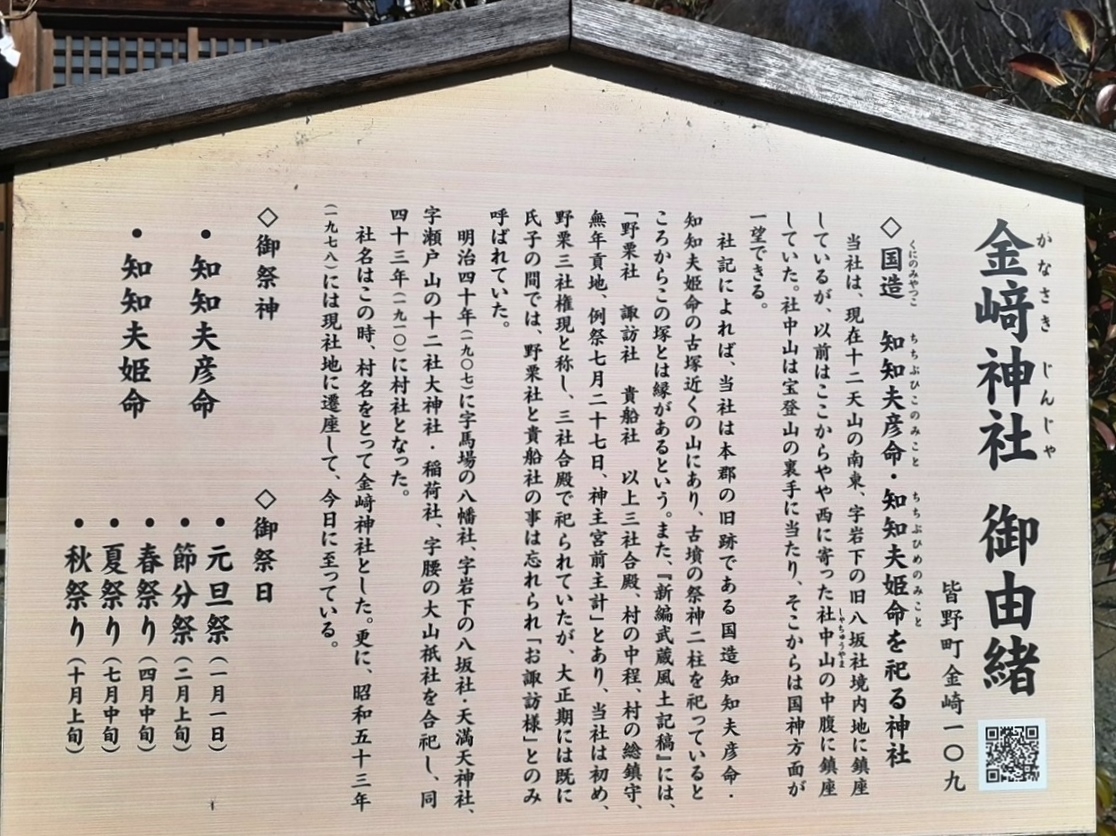 金﨑神社 御由緒
かなさき じんじゃ
皆野町金崎一〇九
◇国造 知知夫彦命・知知夫姫命を祀る神社
くにのみやつこ ちちぶひこのみこと ちちぶひめのみこと
当社は、現在十二天山の南東、字岩下の旧八坂社境内地に鎮座
しているが、以前はここからやや西に寄った社中山の中腹に鎮座
しゃちゅうやま
していた。社中山は宝登山の裏手に当たり、そこからは国神方面が
一望できる。
社記によれば、当社は本郡の旧跡である国造知知夫彦命・
知知夫姫命の古塚近くの山にあり、古墳の祭神二柱を祀っていると
ころからこの塚とは縁があるという。また、『新編武蔵風土記稿』には、
「野栗社 諏訪社 貴船社 以上三社合殿、村の中程、村の総鎮守、
無年貢地、例祭七月二十七日、神主宮前主計」とあり、当社は初め、
野栗三社権現と称し、三社合殿で祀られていたが、大正期には既に
氏子の間では、野栗社と貴船社の事は忘れられ「お諏訪様」とのみ
呼ばれていた。
明治四十年(一九〇七)に字馬場の八幡社、字岩下の八坂社・天満天神社、
字瀬戸山の十二社大神社・稲荷社、字腰の大山祇社を合祀し、同
四十三年(一九一〇)に村社となった。
社名はこの時、村名をとって金﨑神社とした。更に、昭和五十三年
(一九七八)には現社地に遷座して、今日に至っている。
◇御祭神
・知知夫彦命
・知知夫姫命
◇御祭日
・元旦祭(一月一日)
・節分祭(二月上旬)
・春祭り(四月中旬)
・夏祭り(七月中旬)
・秋祭り(十月上旬)